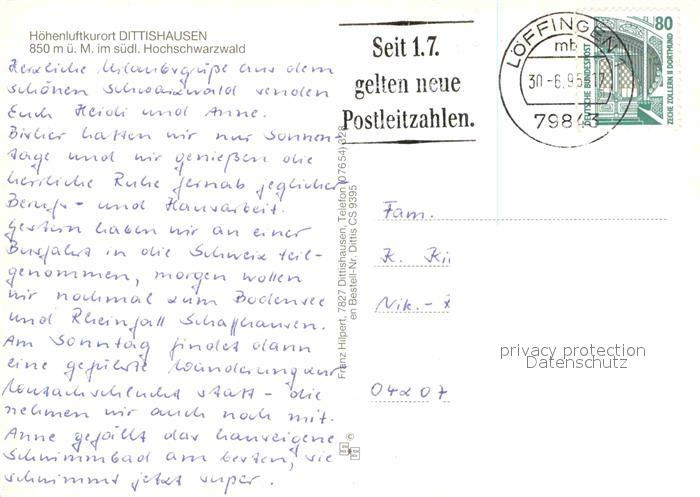 Höhenluftkurort DITTISHAUSEN
850 m ü. M. im südl. Hochschwarzwald
Herzliche Urlaubsgrüße aus dem
schönen Schwarzwald senden
Euch Heidi und Anne.
Bisher hatten wir nur Sonnen-
tage und wir genießen die
herrliche Ruhe fernab jeglicher
Berufs- und Hausarbeit.
Gestern haben wir an einer
Busfahrt in die Schweiz teil-
genommen, morgen wollen
wir nochmal zum Bodensee
und Rheinfall Schaffhausen.
Am Sonntag findet dann
eine geführte Wanderung zur
Wutachschlucht statt - die
nehmen wir auch noch mit.
Anne gefällt das hauseigene
Schwimmbad am besten, sie
schwimmt jetzt super.
Franz Hilpert, 7827 Dittishausen, Telefon (07654) 328
en Bestell-Nr. Dittis CS 9395
©
Seit 1.7.
gelten neue
Postleitzahlen.
LÖFFINGEN 1
mb
30-6.95
79843
80
DEUTSCHE BUNDESPOST
ZECHE ZOLLERN II DORTMUND
Fam.
K. Ki
Nik.-
04207
privacy protection
Datenschutz